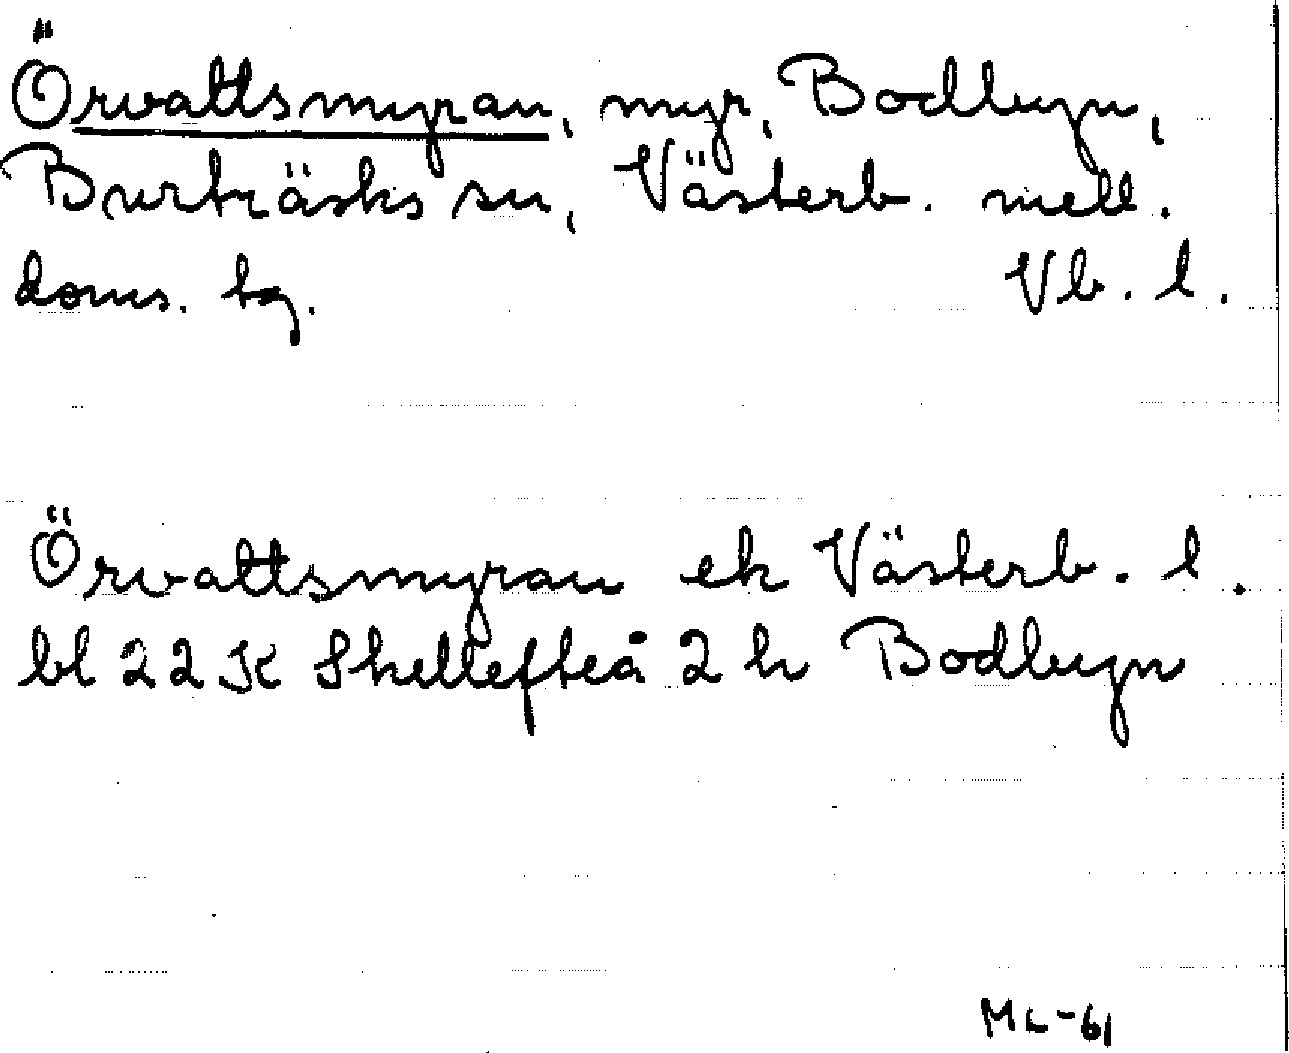 Örvattsmyran, myr, Bodbyn,
Burträsks sn, Västerb. mell.
doms. tg. Vb. l.
Örvattsmyran ek Västerb. l.
bl 22 K Skellefteå 2 h Bodbyn
ML-61